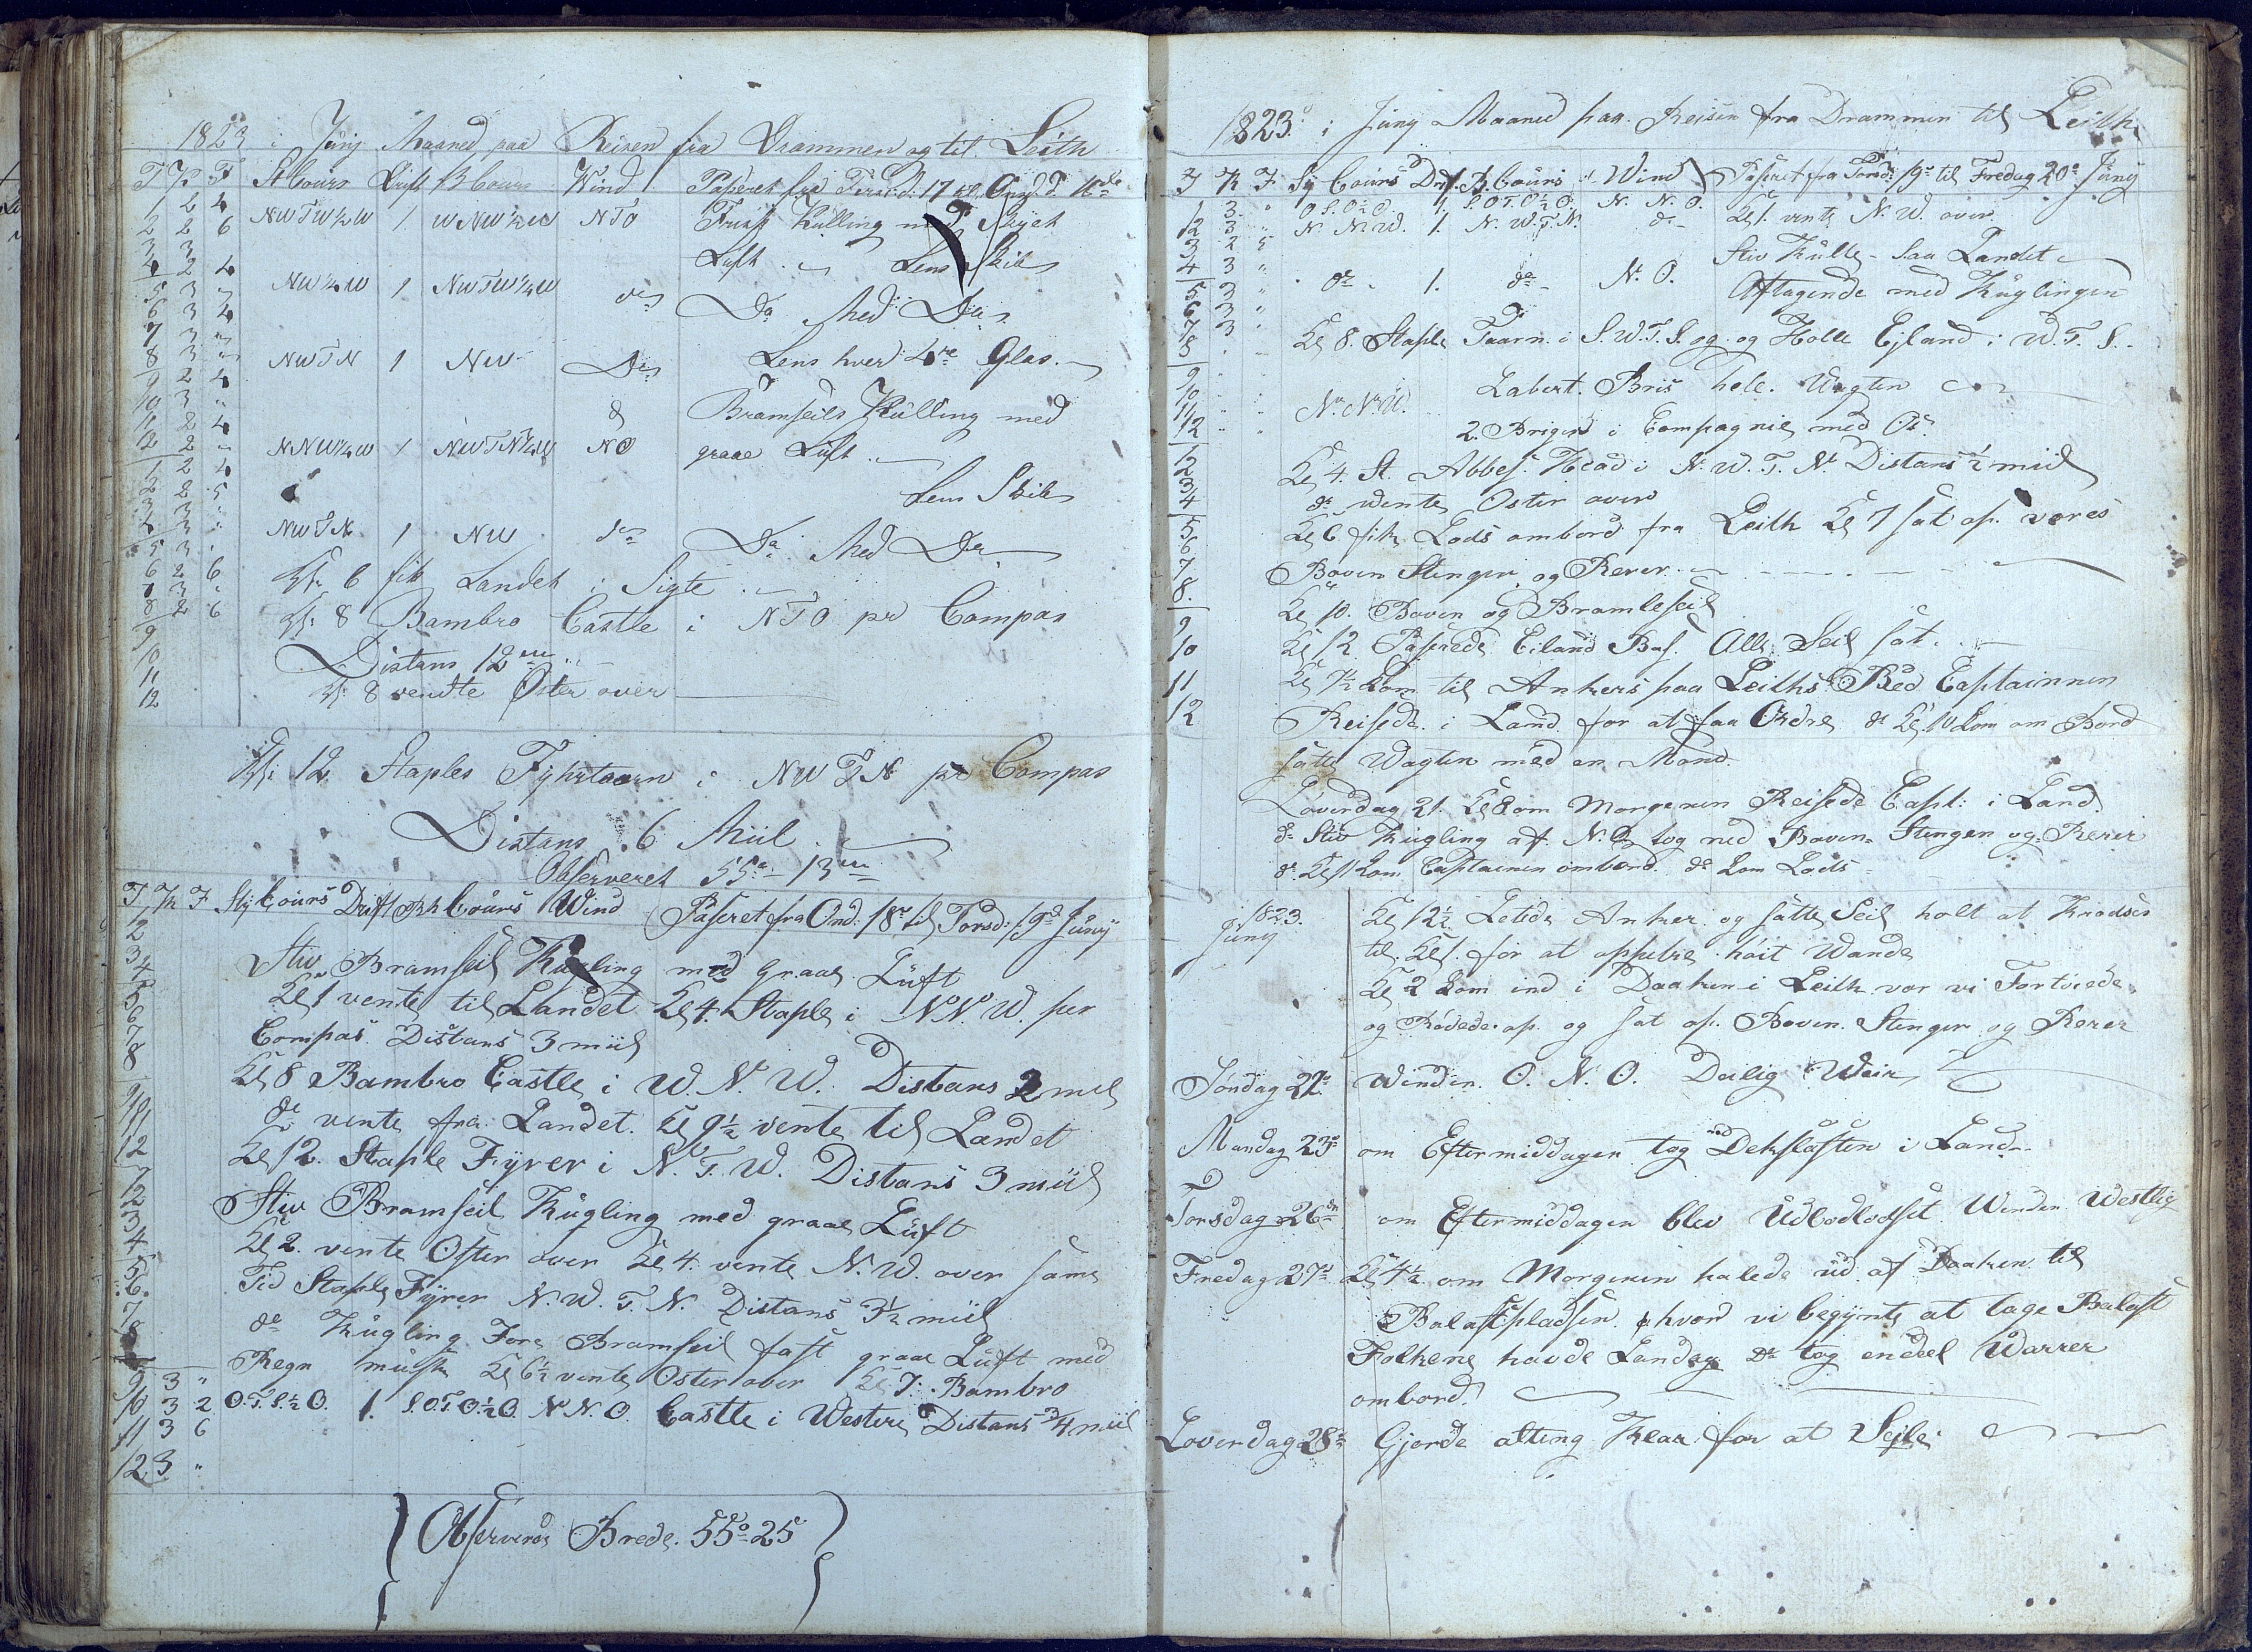 1823 i Junj Maaned paa Reisen fra Drammen og til Leith
T K F St Cours Drift B Cours Wind Passeret fra Tirsd: 17 til Onsd. d. 18de
1 2 4
2 2 6 NWTW½W 1 WNW½W NTO Frisk Kulling med Skyet
3 3 Luft. Lens Skib
4 2 4
5 3 " NW¼W 1 NWTW¼W do Do Med Do
6 3 4
7 3 "
8 3 " NWTN 1 NW Do Lens hver 4re Glas.
9 2 4
10 3 " Bramseils Kulling med
11 2 4
12 2 " NNW¼W 1 NWTN¼W NO graae Luft.
1 2 4 Lens Skib
2 2 5
3 3 "
4 3 " NWTN 1 NW do Do Med Do
5 3 "
6 2 6 Kl: 6 fik Landet i Sigte.
7 3 "
8 2 6 Kl: 8 Bambro Castle i NTO pr Compas
9
10 Distans 12 m
11 Kl: 8 vendte Øster over
12
Kl: 12 Staples Fyhrtaarn i NWTN pr Compas
Distans 6 Miil.
Observeret 55° 13m
T K F Stj Cours Drift BB Cours Wind Passeret fra Ond: 18de til Torsd: 19d Junÿ
1
2 Stiv Bramseil Kugling med graae Luft
3
4 Kl 1 vente til Landet Kl 4 Staple i N.N.W. per
5
6 Compas. Distans 3 miil
7
8 Kl 8 Bambro Castle i W.N.W. Distans 2 miil
9
10 do vente fra Landet. Kl 9½ vente til Landet
11
12 Kl 12. Staple Fÿrer i N.T.W. Distans 3 miil
1
2 Stiv Bramseil Kugling med graae Luft
3
4 Kl 2. vente Øster over Kl 4. vente N.W. over same
5
6 Tid Staple Fÿrer N.W.T.N. Distans 3½ miil
7
8 do Kugling Fore Bramseil fast graae Luft med
9 3 " Regn Kl 6½ vente Oster over Kl 7. Bambro
10 3 2 O.T.S.½O. 1. S.O.T.O.½O. N.N.O. Castle i Vester Distans ¾ miil
11 3 6
12 3 "
Observerede Brede. 55° 25
1823. i Junÿ Maaned paa Reisen fra Drammen til Leith
T K F Stj Cours Drif. B. Cours Wind Passeret fra Torsd: 19de til Fredag 20de Junÿ
1 3 " O.S.O½O. 1. S.O.T.O½O. N.N.O. Kl 1. vente N.W. over
2 3 " N.N.W. 1. N.W.T.N. do
3 2 5 Stiv Kulle - Saa Landet
4 3 " do 1. do N.O. Aftagende med Kuglingen
5 3 "
6 3 "
7 3 " Kl 8. Staple Taarn i S.W.T.S. og og Holle Eÿland i W.T.S.
8
9 Labert. Bris hele Wagten
10
11 N.N.W.
12 2. Briger i Compagnie med Os.
1
2 Kl 4. St. Abbes. Head i N.W.T.N. Distans ½ miil
3
4 do vente Oster over
5 Kl 6 fik Lods ombord fra Leith Kl 7 sat op. vores
6
7 Boven Stenger og Rerer.
8. Kl 10. Boven og Bramleseil
9
10 Kl 12 Passerede Eiland Bas. Alle Seil sat.
11 Kl 7½ kom til Ankers paa Leiths Red Captainnen
12 Reisede i Land for at faa Ordre do Kl 10 kom om Bord
satte Wagten med en Mand.
Løverdag 21. Kl 8 om Morgenen Reisede Capt: i Land
do Stiv Kugling af N.O. tog ned Boven Stengen og Rerer
do Kl 11 kom Captainen ombord. do kom Lods
1823. Kl 12½ Letede Anker og satte Seil holt at Krødses
Junÿ til Kl 1. for at oppebie høit Wande
Kl 2 kom ind i Daaken i Leith vor vi Fortøiede,
og Rødede op. og sat op. Boven. Stenger og Rerer
Søndag 22de Winden O.N.O. Deilig Weir
Mandag 23de om Eftermiddagen tog ned Dekslasten i Land
Torsdag 26de om Eftermiddagen blev Udlodset Winden Westlig
Fredag 27de Kl 4½ om Morgenen halede ud af Daaken til
Balastpladsen hvor vi begÿnte at tage Balast
Folkene havde Landsge do tog endeel Warrer
ombord.
Løverdag 28de Gjorde alting Klar for at Sejle